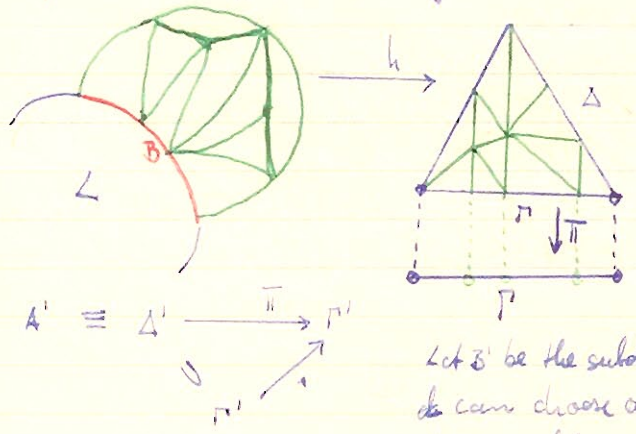 h
Δ
B
L
Γ
↓π
Γ
A' ≡ Δ' π → Γ'
Γ'
Let B' be the subd
can choose a